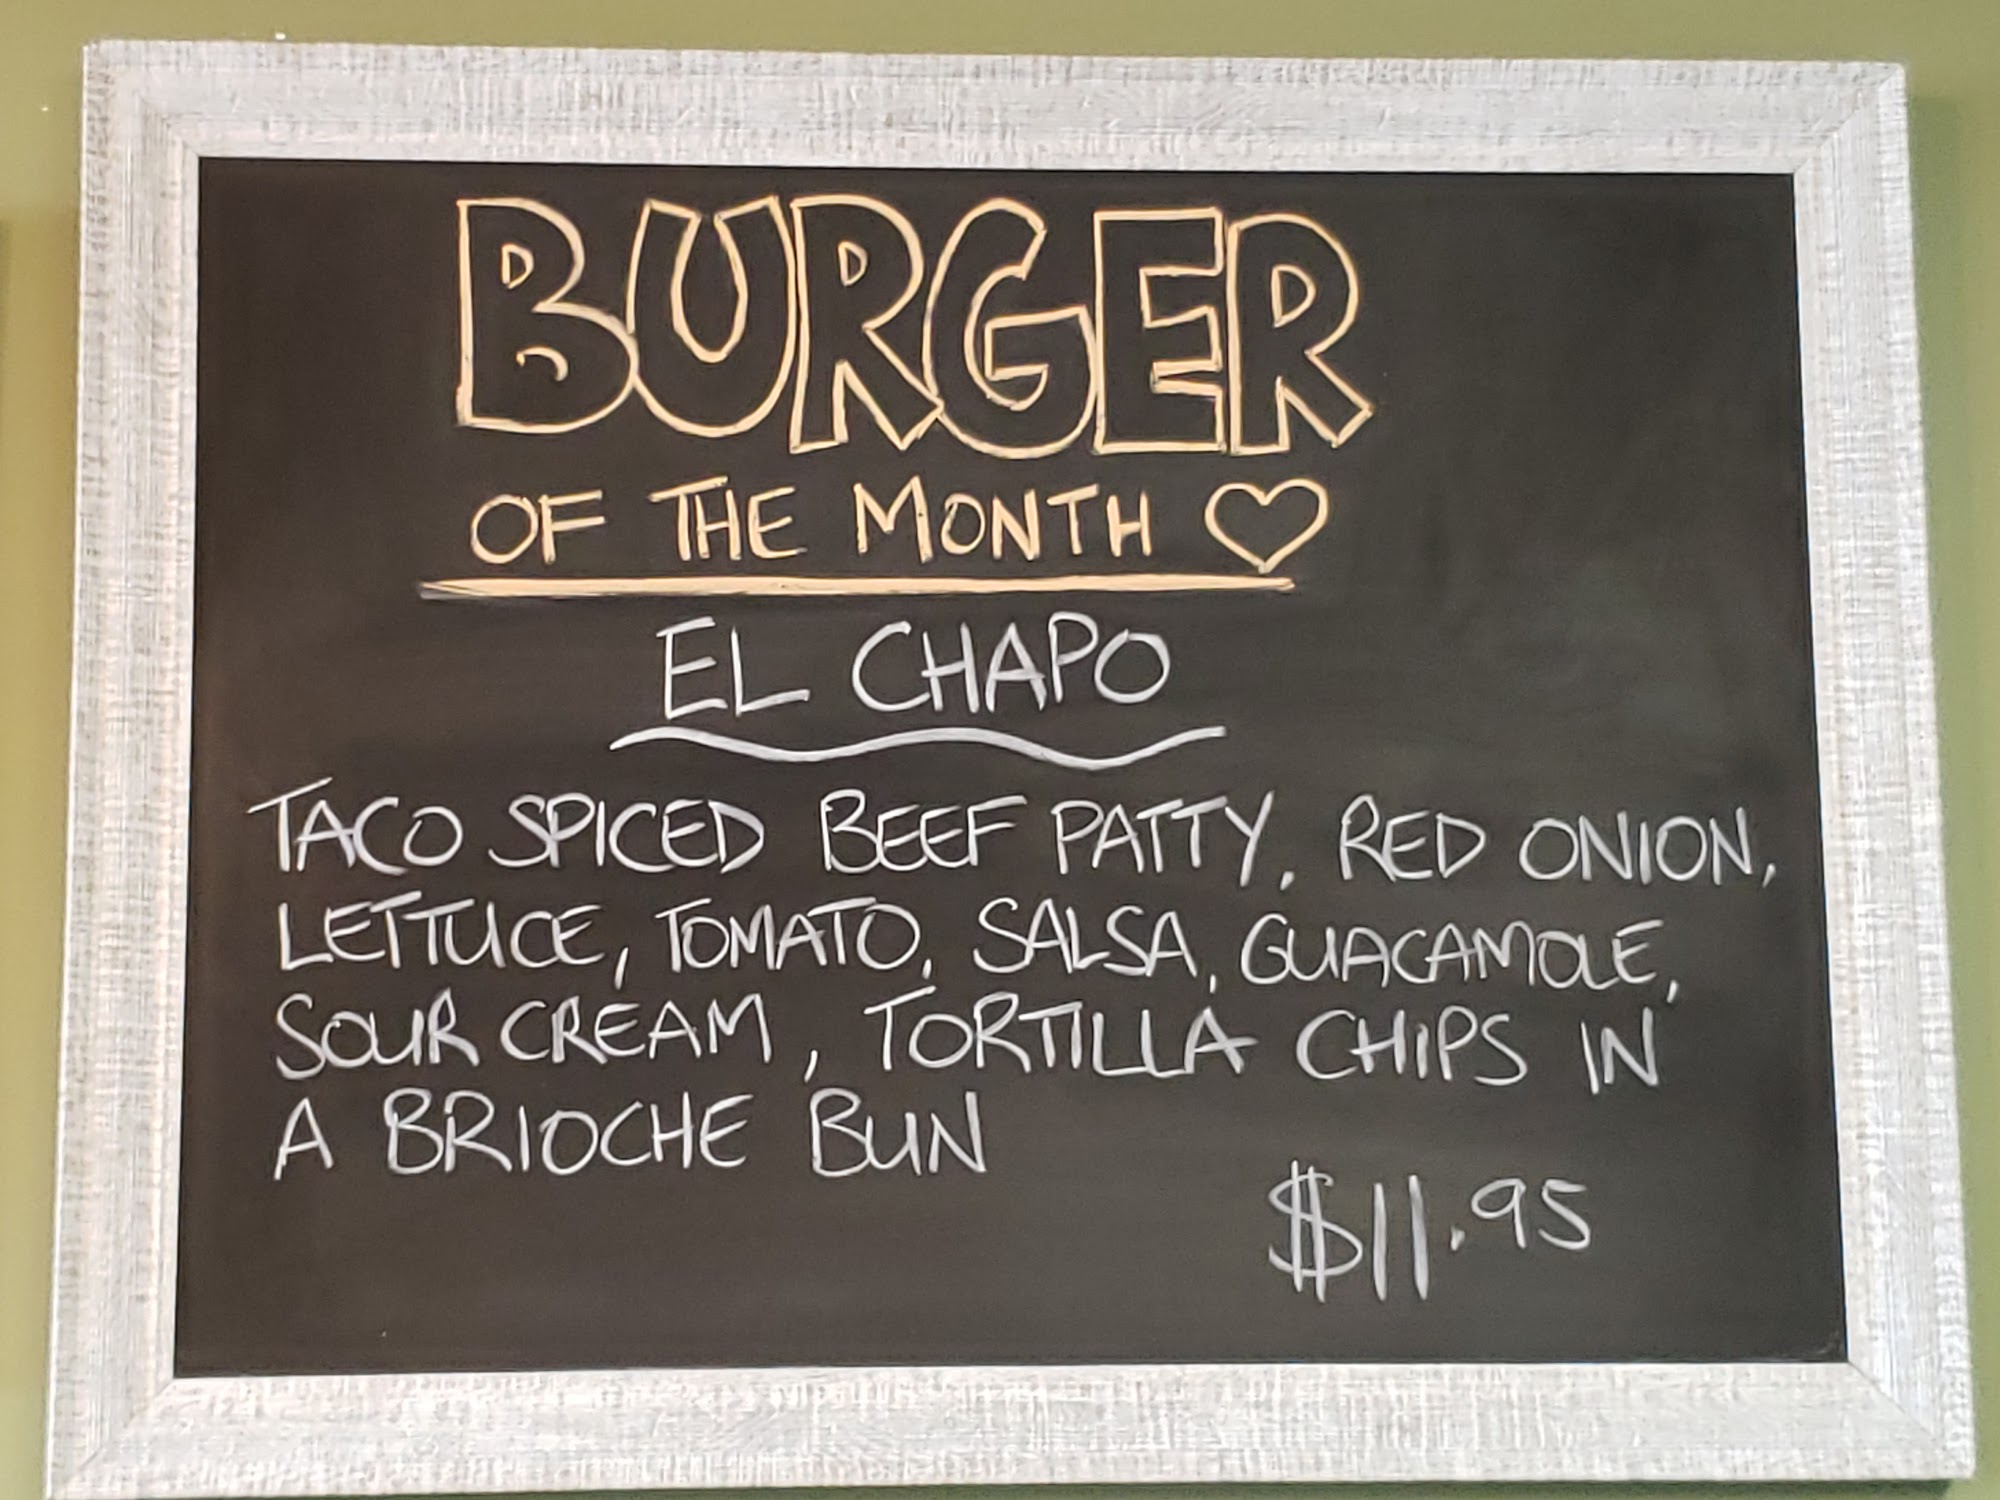 BURGER
OF THE MONTH ♡
EL CHAPO
TACO SPICED BEEF PATTY, RED ONION,
LETTUCE, TOMATO, SALSA, GUACAMOLE,
SOUR CREAM, TORTILLA CHIPS IN
A BRIOCHE BUN
$11.95